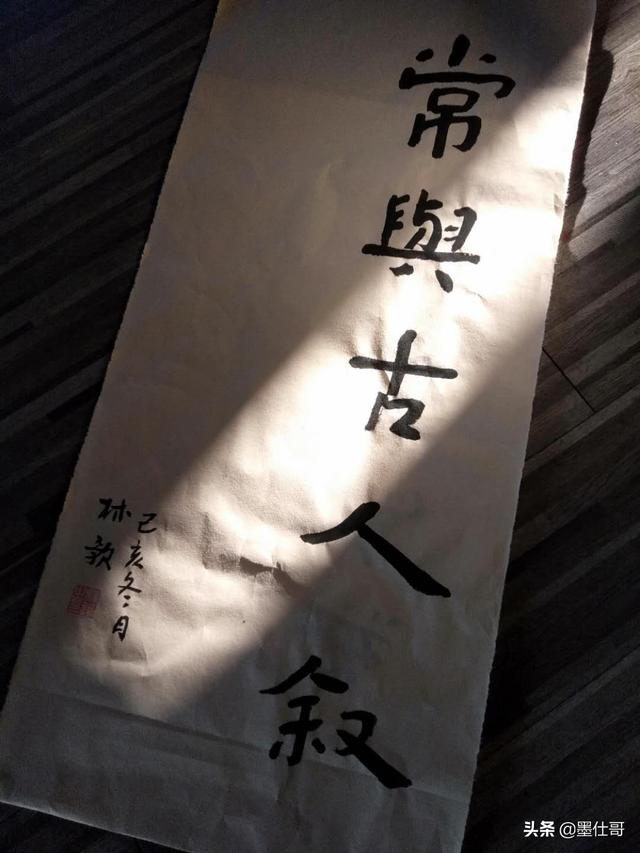 常與古人叙
己亥冬月
林
头条 @墨仕哥